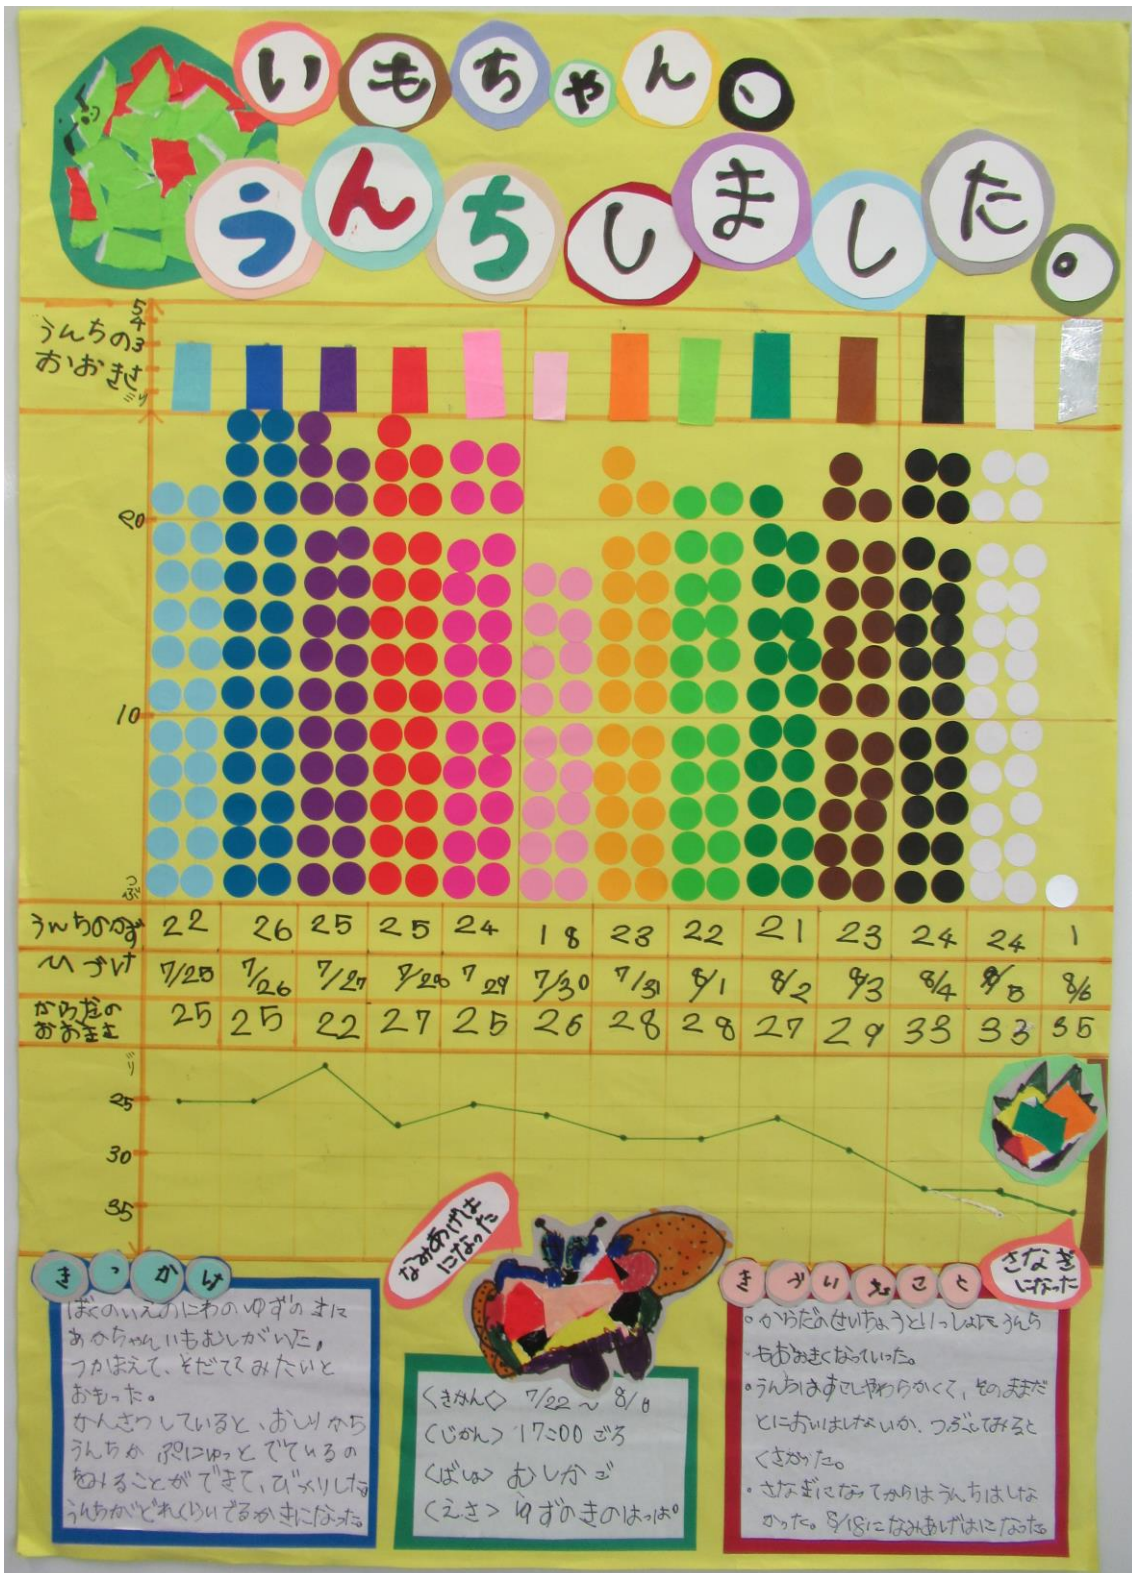 いもちゃん、
うんちしました。
うんちの
おおきさ
ミリ
5
4
3
20
10
つぶ
うんちのかず 22 26 25 25 24 18 23 22 21 23 24 24 1
ひづけ 7/25 7/26 7/27 7/28 7/29 7/30 7/31 8/1 8/2 8/3 8/4 8/5 8/6
からだの
おおきさ 25 25 22 27 25 26 28 28 27 29 33 33 35
ミリ
25
30
35
なみあげは
になった
さなぎ
になった
きっかけ
ぼくのいえのにわのゆずのきに
あかちゃんいもむしがいた。
つかまえて、そだててみたいと
おもった。
かんさつしていると、おしりから
うんちが ぷにゅっと でているの
をみることができて、びっくりした。
うんちがどれくらいでるかきになった。
<きかん> 7/22 ~ 8/6
<じかん> 17:00 ごろ
<ばしょ> むしかご
<えさ> ゆずのきのはっぱ
きづいたこと
・からだのせいちょうといっしょにうんち
もおおきくなっていった。
・うんちはすこしやわらかくて、そのままだ
とにおいはしないが、つぶしてみると
くさかった。
・さなぎになってからはうんちはしな
かった。8/18になみあげはになった。